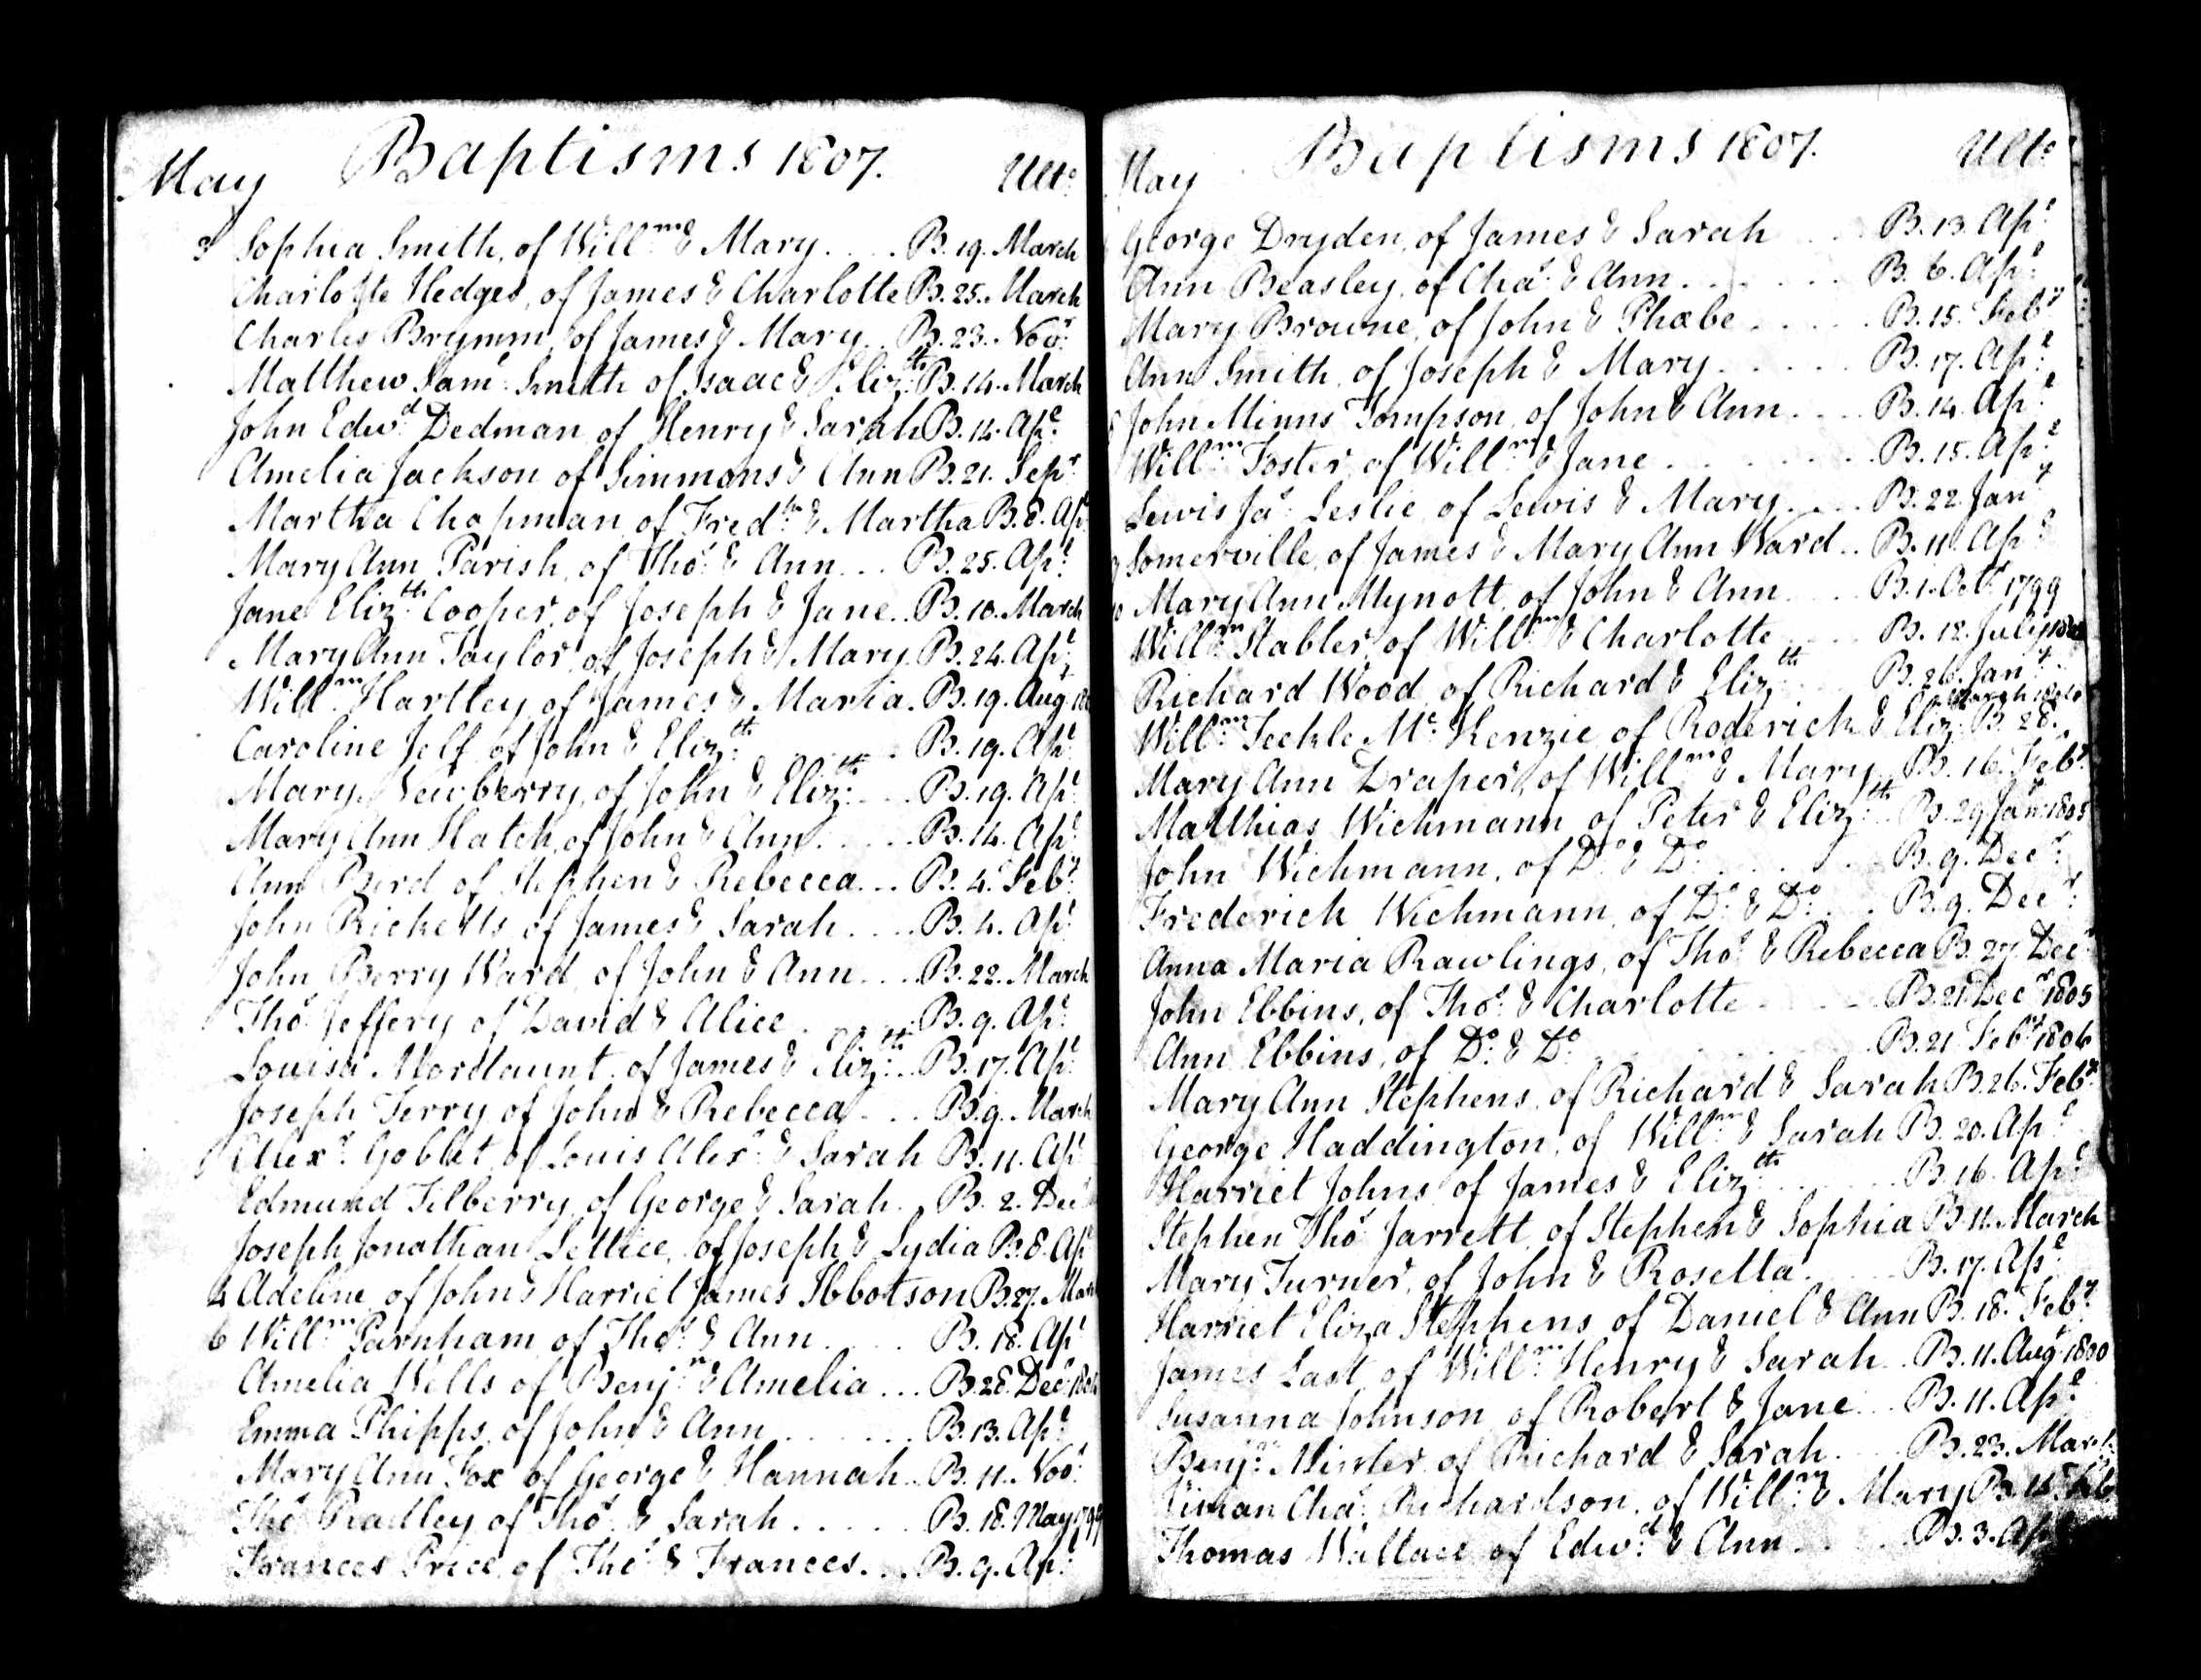 Baptisms 1807.
May Ulto
3 Sophia Smith, of Willm & Mary.... B. 19. March
Charlotte Hedges, of James & Charlotte B. 25. March
Charles Brymm, of James & Mary.. B. 23. Novr
Matthew Saml Smith of Isaac & Elizth B. 14. March
John Edwd Dedman of Henry & Sarah B. 14. Apl
Amelia Jackson of Simmons & Ann B. 21. Sepr
Martha Chapman of Fredk & Martha B. 8. Apl
Mary Ann Parish, of Thos & Ann... B. 25. Apl
Jane Elizth Cooper, of Joseph & Jane.. B. 10. March
Mary Ann Taylor, of Joseph & Mary. B. 24. Apl
Willm Hartley of James & Maria. B. 19. Aug
Caroline Jelf of John & Elizth .... B. 19. Apl
Mary Newberry, of John & Elizth ... B. 19. Apl
Mary Ann Hatch, of John & Ann.... B. 14. Apl
Ann Burd of Stephen & Rebecca... B. 4. Feby
John Ricketts of James & Sarah.... B. 4. Apl
John Berry Ward, of John & Ann... B. 22. March
Thos Jeffery of David & Alice.... B. 9. Apl
Louisa Mordaunt, of James & Elizth .. B. 17. Apl
Joseph Terry of John & Rebecca... B. 9. March
Alexr Goblet, of Louis Alexr & Sarah B. 11. Apl
Edmund Tilberry, of George & Sarah. B. 2. Decr
Joseph Jonathan Lettice, of Joseph & Lydia B. 8. Apl
4 Adeline, of John & Harriet James Ibbotson B. 27. March
6 Willm Parnham of Thos & Ann.... B. 18. Apl
Amelia Wells of Benjn & Amelia... B. 28. Decr
Emma Phipps, of John & Ann...... B. 13. Apl
Mary Ann Fox of George & Hannah.. B. 11. Novr
Thos Radley of Thos & Sarah..... B. 18. May
Frances Price, of Thos & Frances... B. 9. Apl
Baptisms 1807.
May Ulto
George Dryden, of James & Sarah .. B. 13. Apl
Ann Beasley, of Chas & Ann...... B. 6. Apl
Mary Browne, of John & Phœbe..... B. 15. Feby
Ann Smith, of Joseph & Mary..... B. 17. Apl
John Minns Tompson, of John & Ann.... B. 14. Apl
Willm Foster, of Willm & Jane....... B. 15. Apl
Lewis Jas Leslie, of Lewis & Mary.... B. 22. Jany
Somerville, of James & Mary Ann Ward.. B. 11. Apl
10 Mary Ann Mynott, of John & Ann.... B. 1. Octr 1799
Willm Stabler, of Willm & Charlotte.... B. 12. July
Richard Wood, of Richard & Elizth ... B. 26. Jany
Willm Teckle Mc Kenzie of Roderick & Eliz B. 28. March
Mary Ann Draper, of Willm & Mary B. 16. Feby
Matthias Wichmann of Peter & Elizth B. 29 Jany 1805
John Wichmann, of Do & Do ..... B. 9. Decr
Frederich Wichmann, of Do & Do .. B. 9. Decr
Anna Maria Rawlings, of Thos & Rebecca B. 27. Decr
John Ebbins, of Thos & Charlotte.... B. 21 Decr 1805
Ann Ebbins, of Do & Do ....... B. 21 Feby 1806
Mary Ann Stephens, of Richard & Sarah B. 26. Feby
George Haddington, of Willm & Sarah B. 20. Apl
Harriet Johns of James & Elizth ..... B. 16. Apl
Stephen Thos Jarrett, of Stephen & Sophia B. 11. March
Mary Turner, of John & Rosetta.... B. 17. Apl
Harriet Eliza Stephens of Daniel & Ann B. 18. Feby
James Last, of Willm Henry & Sarah.. B. 11. Augt 1800
Susanna Johnson of Robert & Jane... B. 11. Apl
Benjn Minter, of Richard & Sarah.... B. 23. March
Chas Richardson, of Willm & Mary B. Feb
Thomas Wallace, of Edwd & Ann.... B. 3. Apl